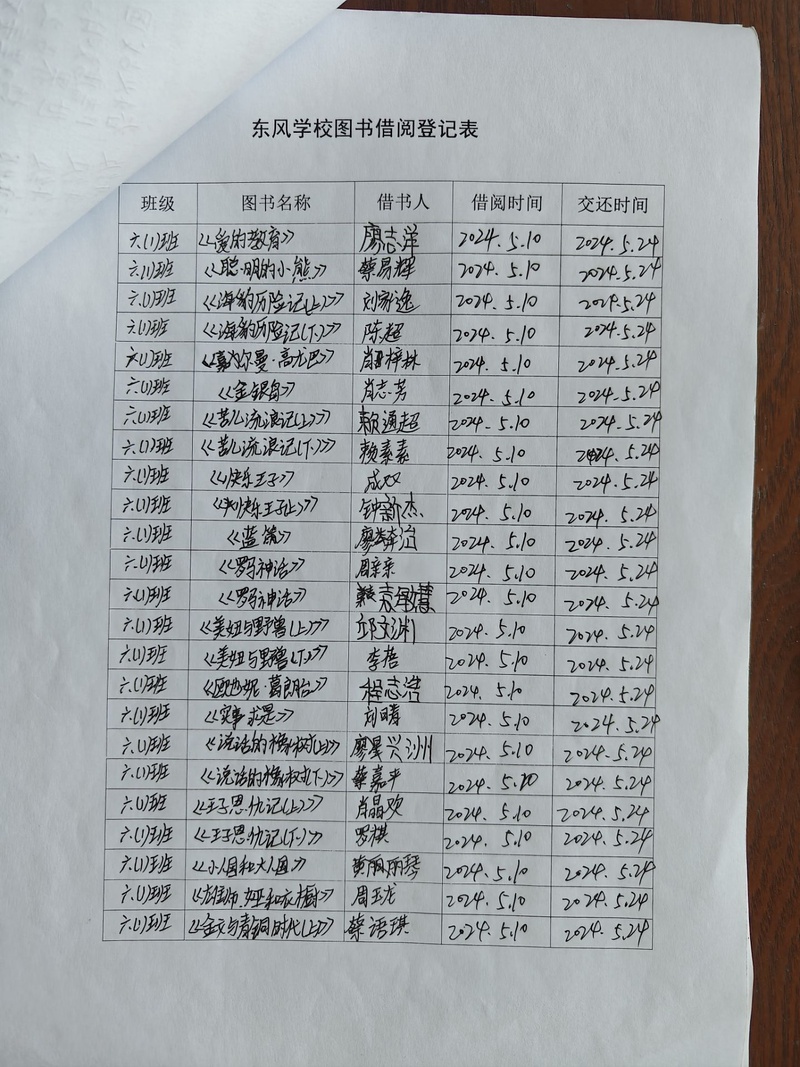 东风学校图书借阅登记表
班级 图书名称 借书人 借阅时间 交还时间
六(1)班 《爱的教育》 廖志洋 2024.5.10 2024.5.24
六(1)班 《聪明的小熊》 蔡易辉 2024.5.10 2024.5.24
六(1)班 《海豹历险记(上)》 刘家逸 2024.5.10 2024.5.24
六(1)班 《海豹历险记(下)》 陈超 2024.5.10 2024.5.24
六(1)班 《葛为尔曼·高尤巴》 肖梓林 2024.5.10 2024.5.24
六(1)班 《金银岛》 肖志芳 2024.5.10 2024.5.24
六(1)班 《苦儿流浪记(上)》 赖通超 2024.5.10 2024.5.24
六(1)班 《苦儿流浪记(下)》 赖素素 2024.5.10 2024.5.24
六(1)班 《快乐王子》 成双 2024.5.10 2024.5.24
六(1)班 《快乐王子上》 钟新杰 2024.5.10 2024.5.24
六(1)班 《蓝箭》 廖治 2024.5.10 2024.5.24
六(1)班 《罗马神话》 周亲亲 2024.5.10 2024.5.24
六(1)班 《罗马神话》 袁慧 2024.5.10 2024.5.24
六(1)班 《美妞与野兽(上)》 邱文渊 2024.5.10 2024.5.24
六(1)班 《美妞与野兽(下)》 李梧 2024.5.10 2024.5.24
六(1)班 《欧也妮·葛朗台》 程志浩 2024.5.10 2024.5.24
六(1)班 《实事求是》 刘晴 2024.5.10 2024.5.24
六(1)班 《说话的橡树(上)》 廖兴洲 2024.5.10 2024.5.24
六(1)班 《说话的橡树(下)》 蔡嘉平 2024.5.10 2024.5.24
六(1)班 《王子恩仇记(上)》 肖晶欢 2024.5.10 2024.5.24
六(1)班 《王子恩仇记(下)》 罗棋 2024.5.10 2024.5.24
六(1)班 《小人国和大人国》 黄丽琴 2024.5.10 2024.5.24
六(1)班 《雄狮、女巫和衣橱》 周玉龙 2024.5.10 2024.5.24
六(1)班 《金文与青铜时代(上)》 蔡语琪 2024.5.10 2024.5.24